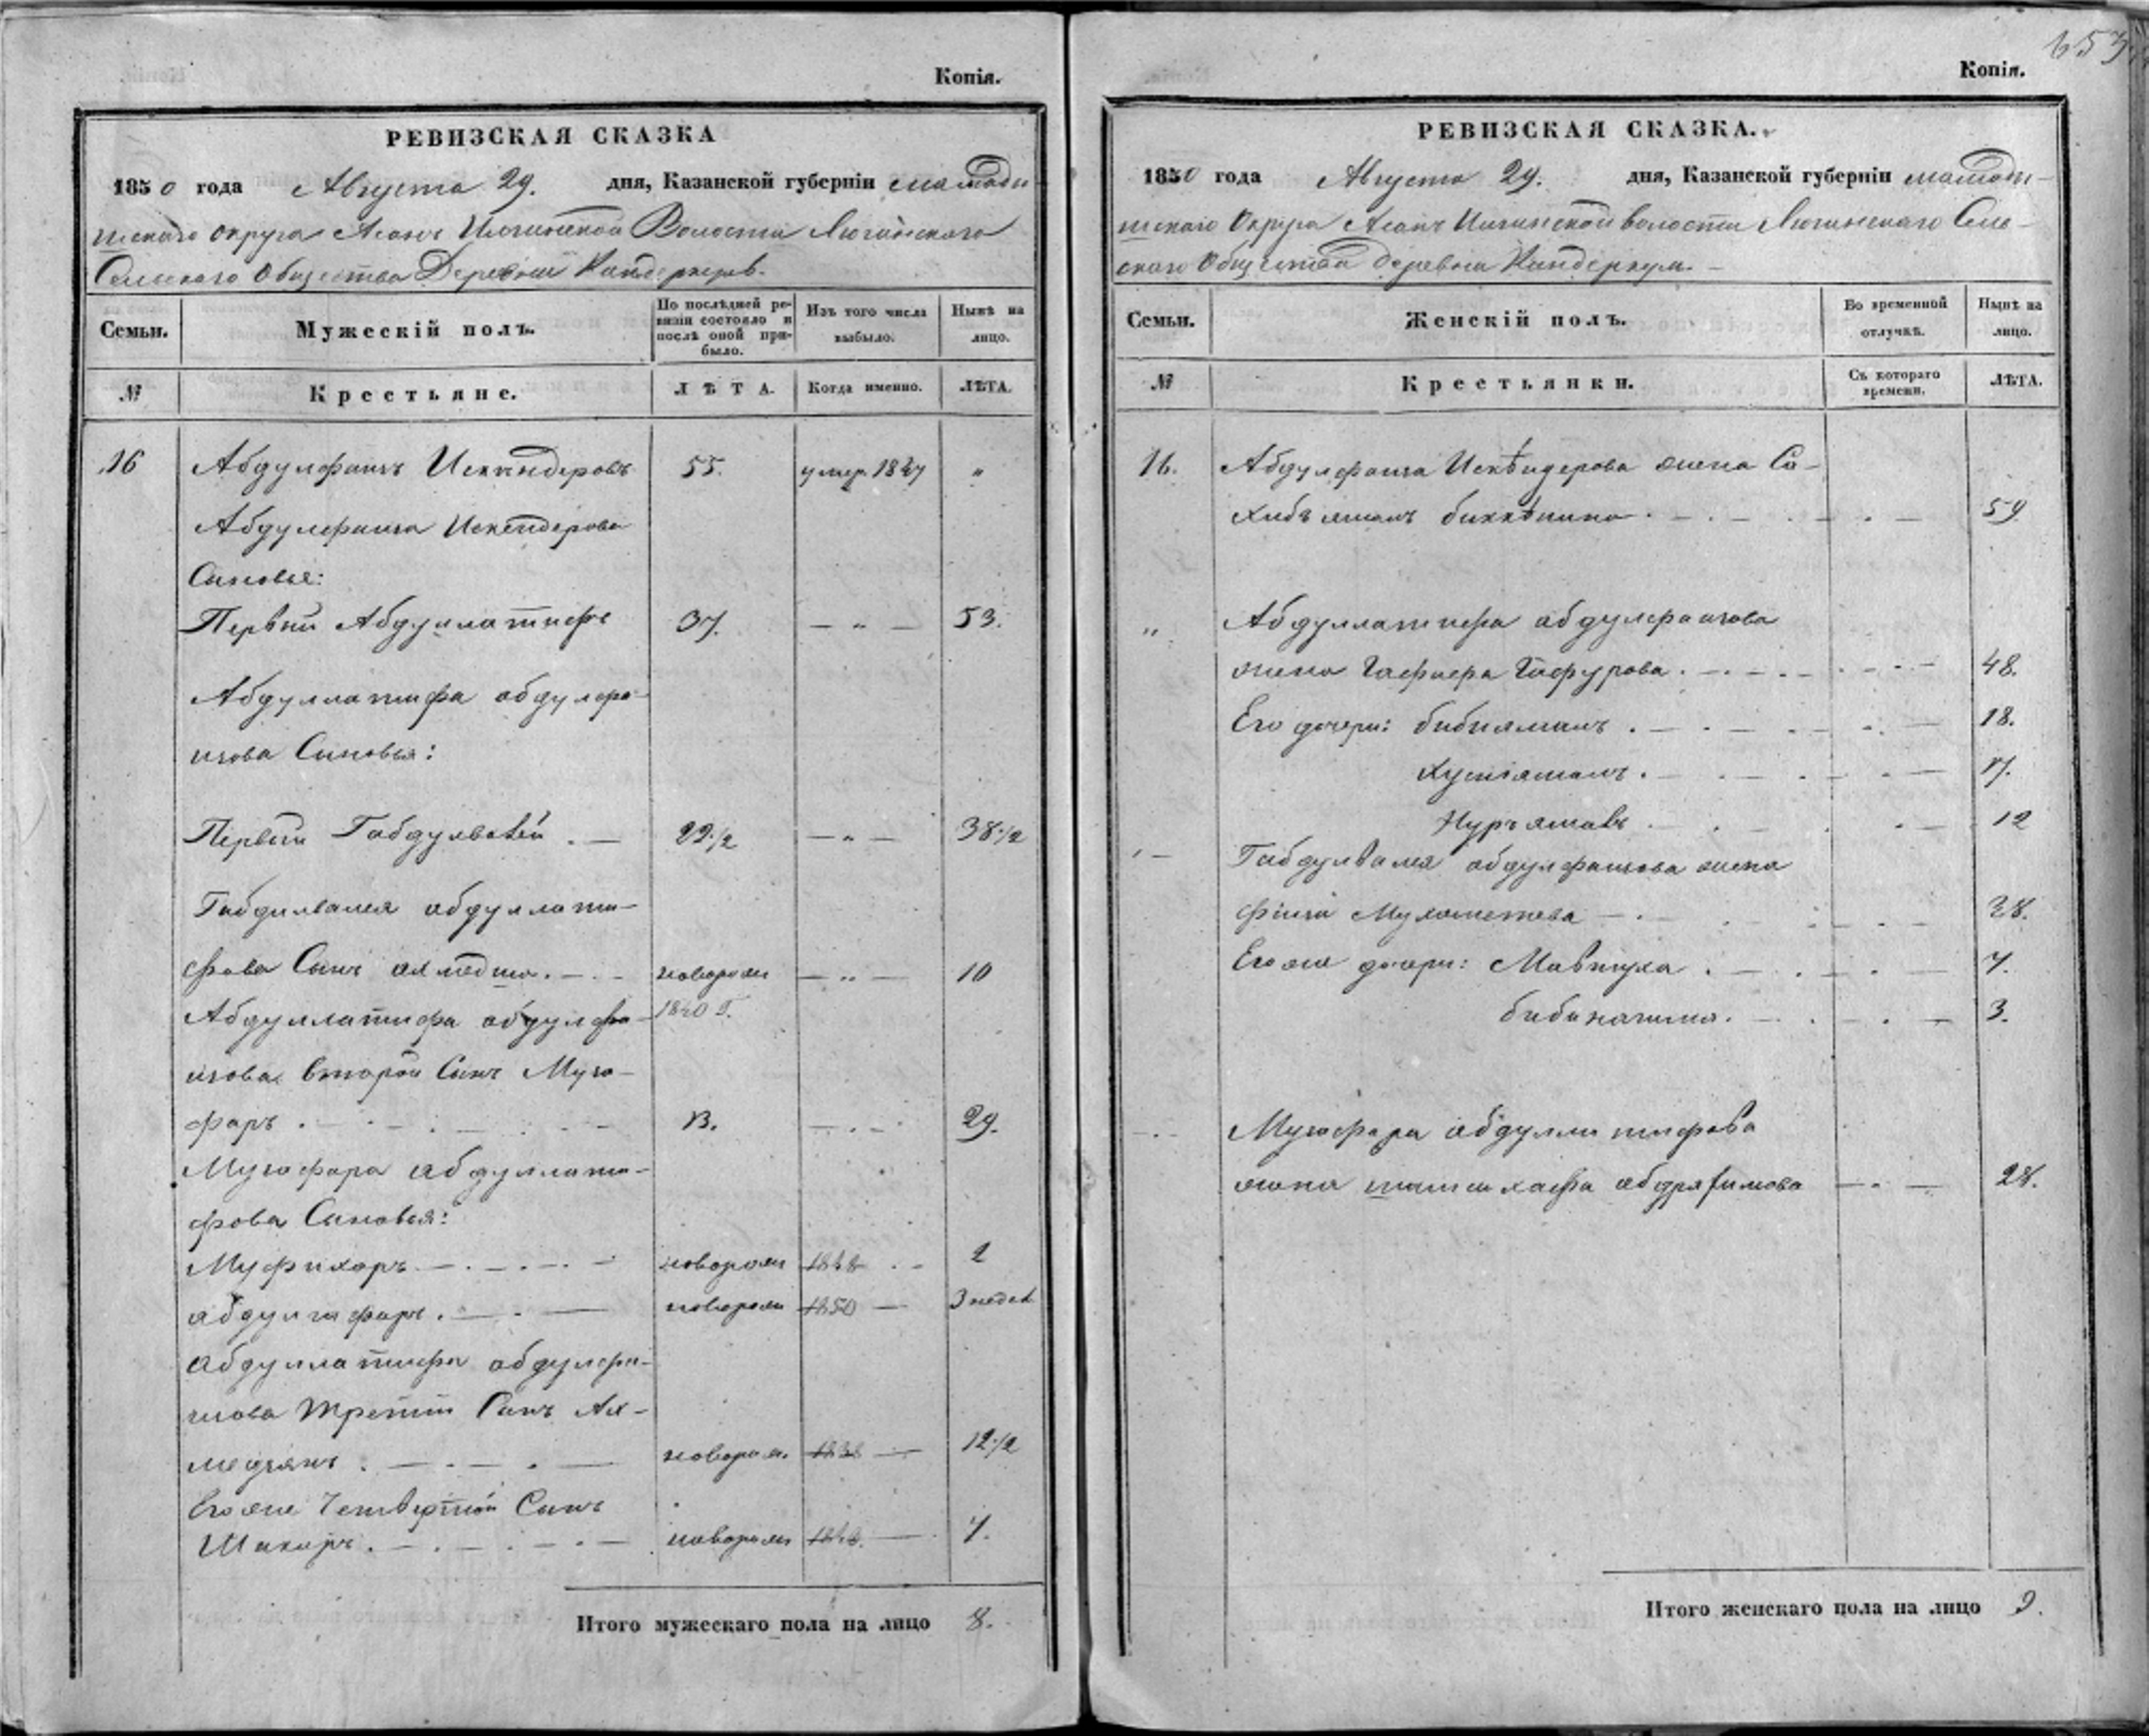 653
Копія.
РЕВИЗСКАЯ СКАЗКА
1850 года Августа 29. дня, Казанской губерніи Мамады-
шскаго округа Асанъ Илгинской Волости Люгинскаго
Сельскаго Общества Деревни
Семьи. Мужескій полъ. По послѣдней ре- Изъ того числа Нынѣ на
визіи состояло и выбыло. лицо.
послѣ оной при-
было.
№ Крестьяне. ЛѢТА. Когда именно. ЛѢТА.
16 Абдулфаизъ Искендеровъ 55. умер. 1847 "
Абдулфаиза Искендерова
Сыновья:
Первый Абдуллатифъ 37. — " — 53.
Абдуллатифа абдулфа-
изова Сыновья:
Первый Габдулвалей . — 22½ — " — 38½
Габдулвалея абдуллати-
фова Сынъ ахметша . — . — новорож — " — 10
Абдуллатифа абдулфа- 1840 г.
изова второй Сынъ Музо-
фаръ . — . — 13. — . — . 29.
Музофара абдуллати-
фова Сыновья:
Муфихаръ — . — . — новорож 1848 . — 2
абдулгафаръ . — . — новорож 1850 — 3 недел
Абдуллатифа абдулфа-
изова третій Сынъ Ах-
медзянъ . — . — . — новорож. 1838 — 12½
Его же Четвертой Сынъ
Шакиръ . — . — . — новорож — 7.
Итого мужескаго пола на лицо 8.
Копія.
РЕВИЗСКАЯ СКАЗКА.
1850 года Августа 29. дня, Казанской губерніи Мамады-
шскаго Округа Асанъ Илгинской волости Люгинскаго Сель-
скаго Общества деревни
Семьи. Женскій полъ. Во временной Нынѣ на
отлучкѣ. лицо.
№ Крестьянки. Съ котораго ЛѢТА.
времени.
16. Абдулфаиза Искѣндерова жена Са-
хибъямалъ биккѣнина . — . — . — 59
" Абдуллатифа абдулфаизова
жена Гафифа Гафурова . — . — 48.
Его дочери: бибиямалъ . — . — 18.
Хусніямалъ . — . — 17.
Нуръямалъ . — 12
" — Габдулвалея абдулфаизова жена
Мухаметева — . — 38.
Его же дочери: Мавтуха . — . — 7.
. — . — 3.
— . — Музафара абдуллатифова
жена абдряфикова — . — 28.
Итого женскаго пола на лицо 9.